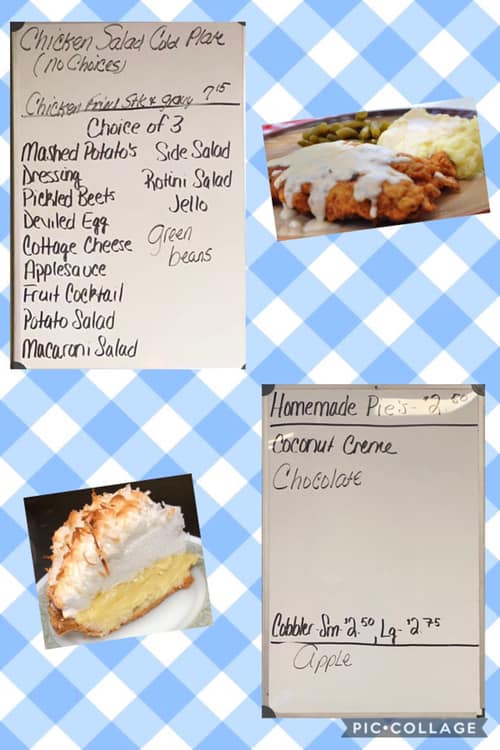 Chicken Salad Cold Plate
(No Choices)
Chicken Fried Stk & Gravy 7.15
Choice of 3
Mashed Potato's
Dressing
Pickled Beets
Deviled Egg
Cottage Cheese
Applesauce
Fruit Cocktail
Potato Salad
Macaroni Salad
Side Salad
Rotini Salad
Jello
green
beans
Homemade Pie's - $2.50
Coconut Creme
Chocolate
Cobbler - Sm - $2.50, Lg - $2.75
Apple
PIC•COLLAGE